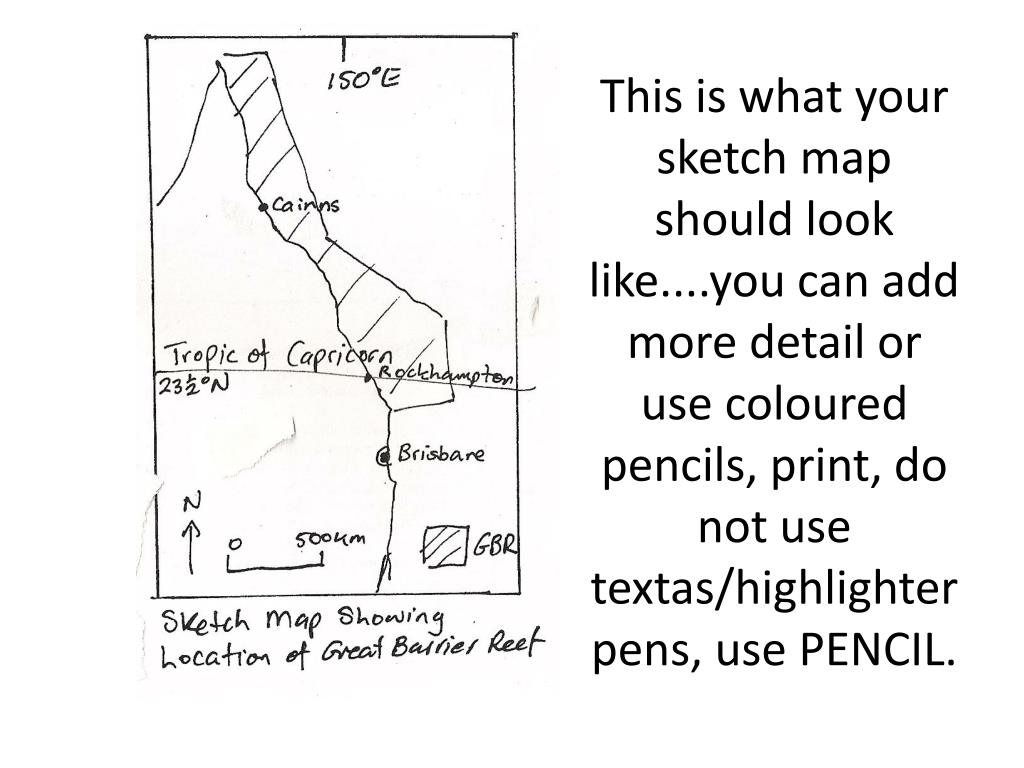 150°E
Cairns
Tropic of Capricorn
Rockhampton
23½°N
Brisbane
N
0 500km
GBR
Sketch Map Showing
Location of Great Barrier Reef
This is what your
sketch map
should look
like....you can add
more detail or
use coloured
pencils, print, do
not use
textas/highlighter
pens, use PENCIL.